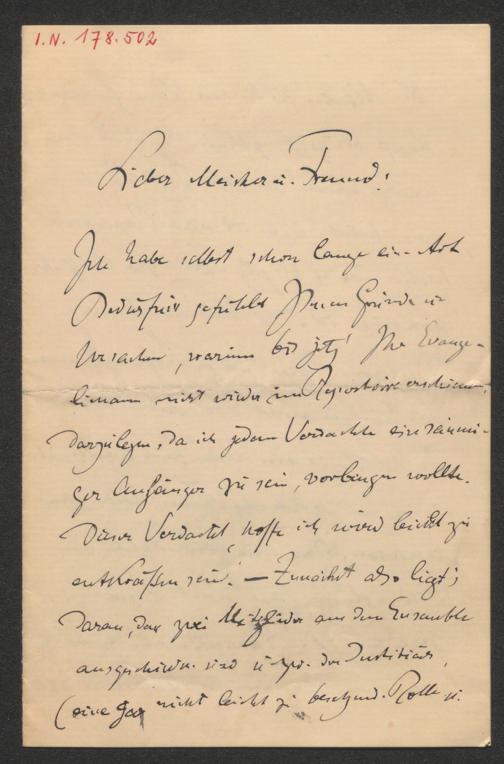 I.N. 178.502
Lieber Meister u. Freund!
Ich habe selbst schon lange eine Art
Bedürfnis gefühlt Ihnen Gründe u
Ursachen, warum bis jetzt Ihr Evange-
limann nicht wieder im Repertoire erschienen,
darzulegen, da ich jedem Verdachte ein säumi-
ger Anhänger zu sein, vorbeugen wollte.
Dieser Verdacht, hoffe ich wird leicht zu
entkräften sein! — Zunächst also liegt's
daran, daß zwei Mitglieder aus dem Ensemble
ausgeschieden sind u. zw. der Justitiär,
(eine gar nicht leicht zu besetzend. Rolle u.